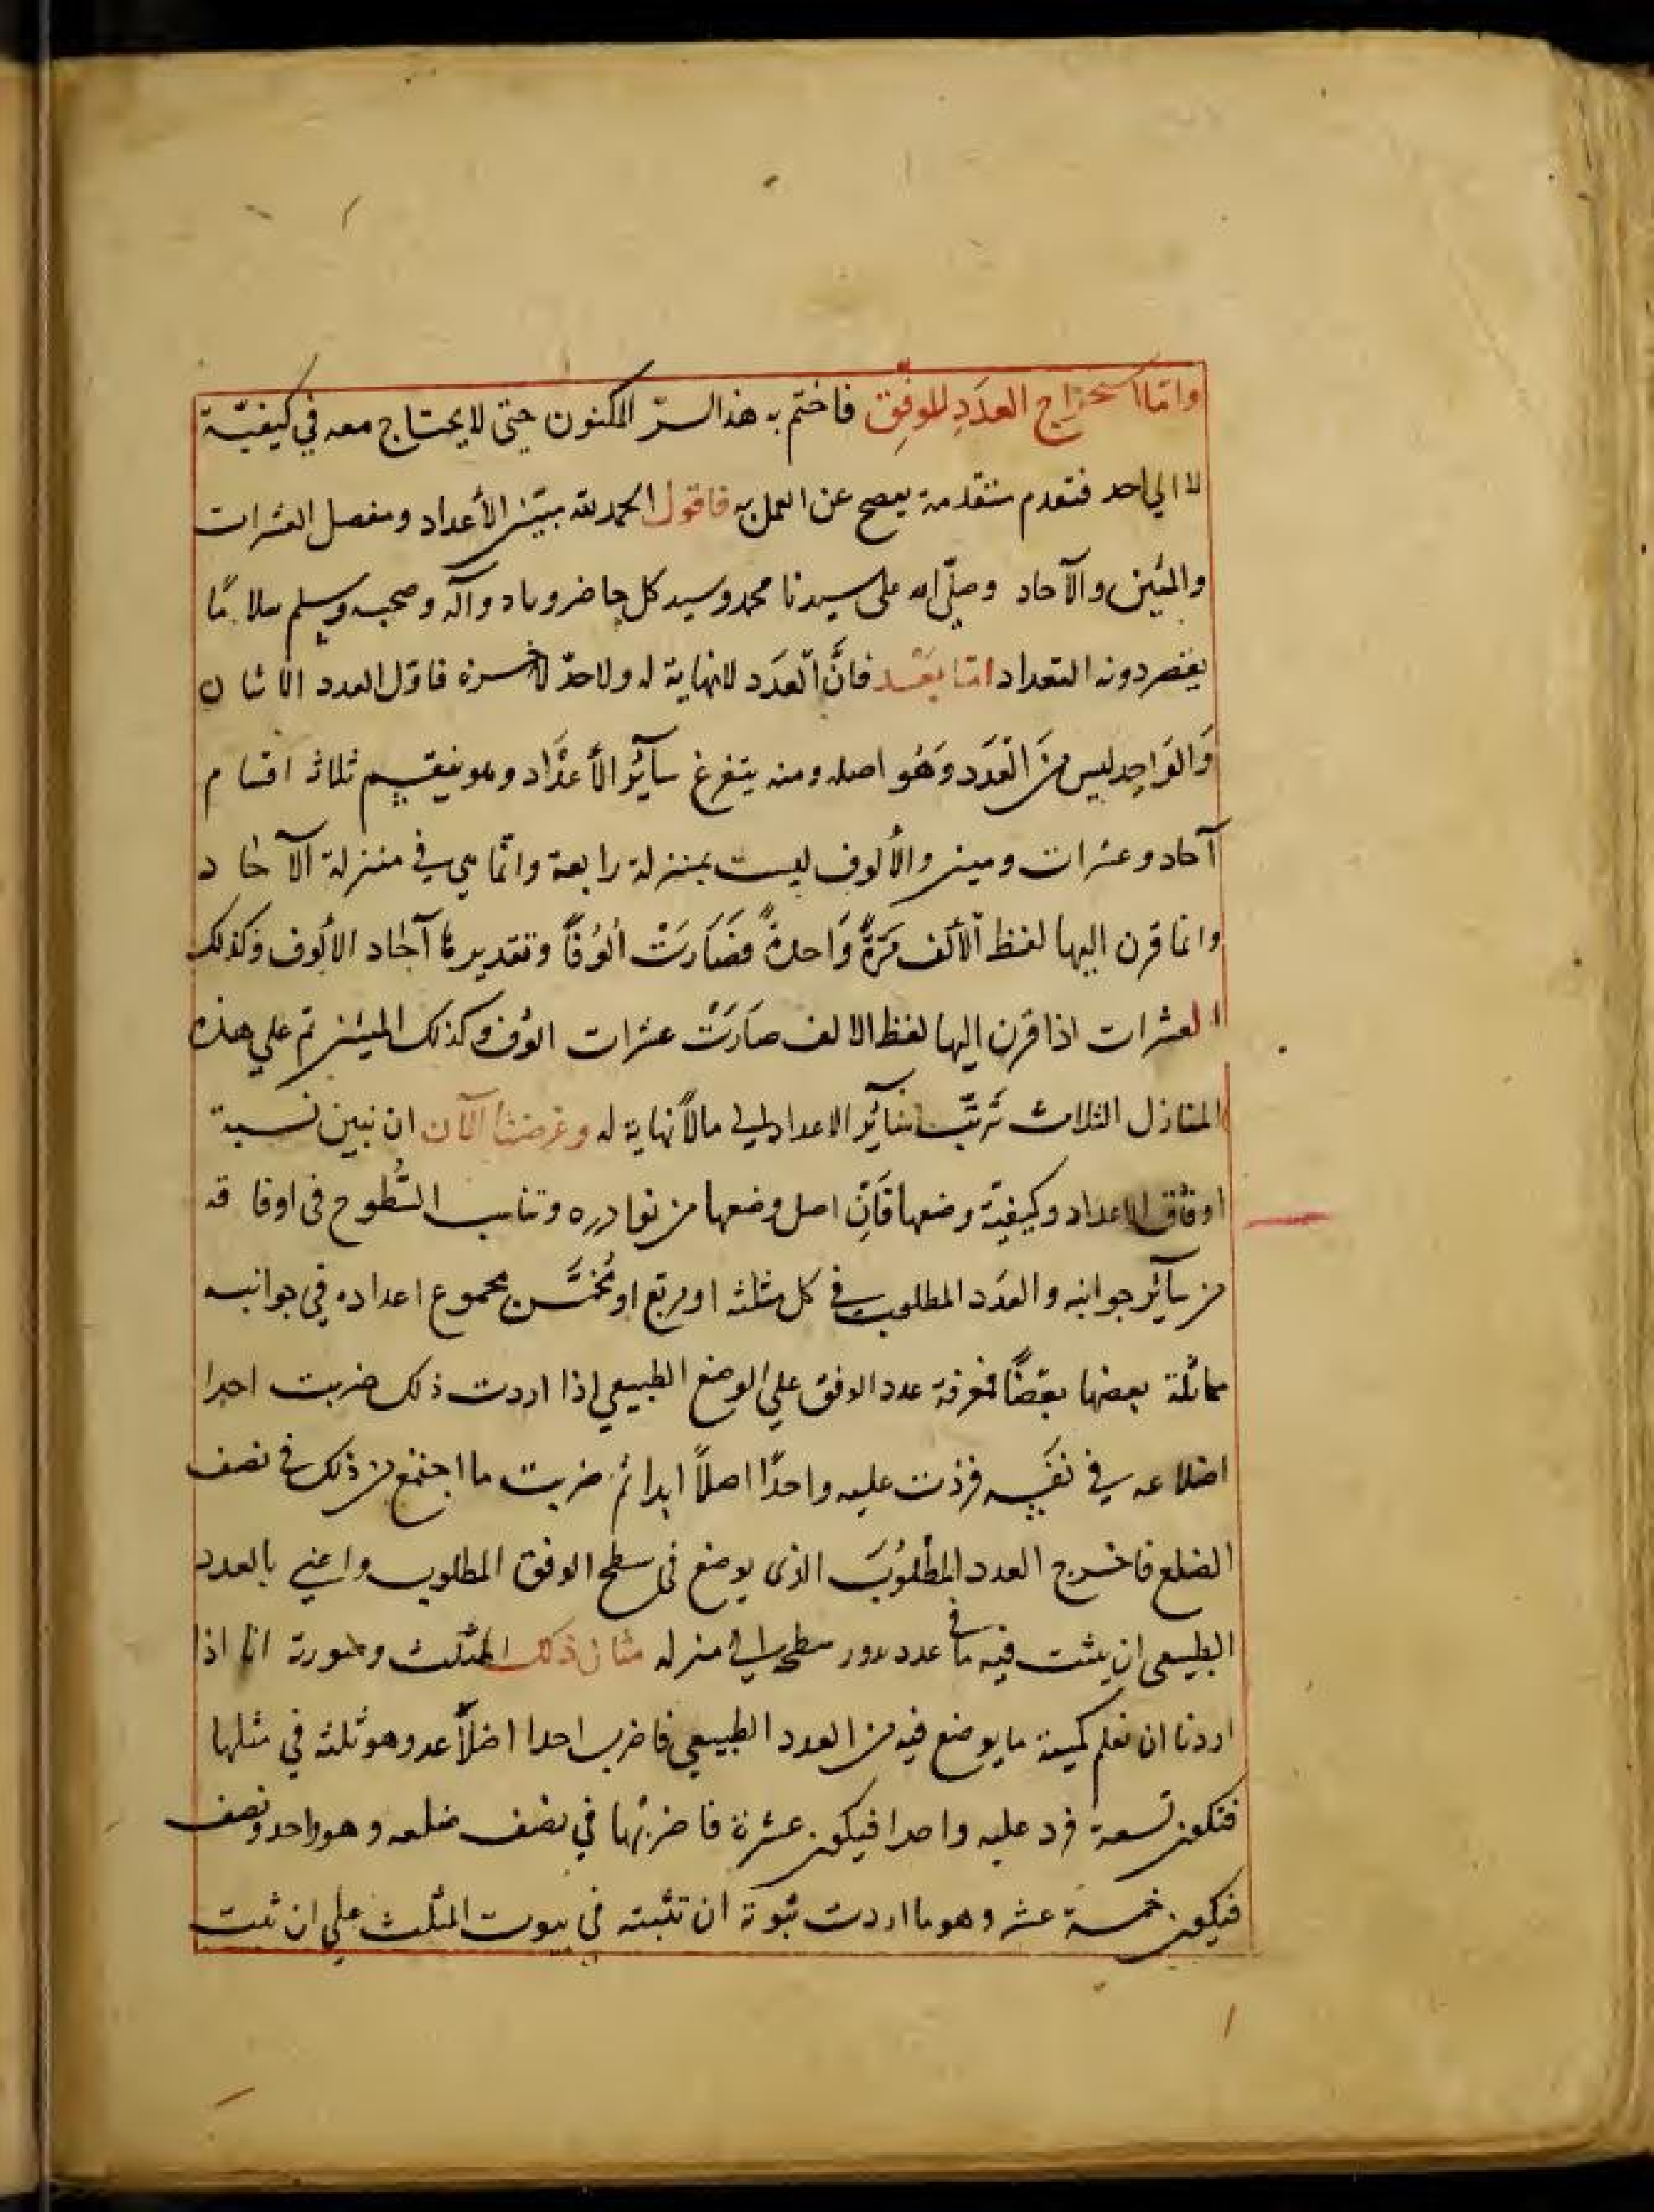 واما استخراج العدَدِ للموفِق فاختم به هذا السرّ المكنون حتى لا يحتاج معه في كيفيّة
لا الي احد فنقدم متقدمة يفصح عن العمل به فاقول الحمد لله مبيّن الأعداد ومفصل العشرات
والمئين والآحاد وصلّى الله على سيدنا محمد وسيد كل حاضر وباد وآله وصحبه وسلم سلامًا
يقصر دونه التعداد امّا بَعْد فانَّ العدَد لا نهاية له ولا حدّ فاوّل العدد الاثنان
وَالوَاحِد ليس من العَدَد وَهُو اصله ومنه يتفرغ سآئر الأَعدَاد وهو ينقسم ثلاثة اقسام
آحاد وعشرات ومين والألوف ليست بمنزلة رابعة وانّما هي في منزلة الآحاد
وانما قرن اليها لفظ الألف مَرّةً وَاحدةً فصَارَتْ ألوُفًا وتقديرها آحاد الألوف وكذلك
العشرات اذا قرن اليها لفظ الالف صارَتْ عشرات الوُف وكذلك الميئن ثم علي هذه
المنازل الثلاث تَرتّب سآئر الاعداد الي مالا نهاية له وغرضنا الآن ان نبين نسبة
اوفاق الاعداد وكيفية وضعها فَانّ اصل وضعها من نوادره وتناسب السُّطوح في اوفاقه
من سآئر جوانبه والعدَد المطلوب في كل مثلثه او مربع او مُخمَّس مجموع اعداده في جوانبه
مماثلة بعضها بعضًا فمعرفة عدد الوفق علي الوضع الطبيعي اذا اردت ذلك ضربت احدا
اضلاعه في نفسِه فزدت عليه واحدًا اصلاً ابدا ثم ضربت ما اجتمع من ذلك في نصف
الضلع فاخرج العدد المطلوُبَ الذى يوضع في سطح الوفق المطلوب واعني بالعدد
الطبيعي ان يثبت فيه ما في عدد سطح منزله مثال ذلك المثلث وصورة انا اذا
اردنا ان نعلم كمية ما يوضع فيه من العدد الطبيعي فاضرب احدا اضلاعه وهو ثلثه في مثلها
فتكون تسعة فزد عليه واحدا فيكون عشرة فاضربها في نصف ضلعه وهو واحد ونصف
فيكون خمسة عشر وهو ما اردت ثبوته ان تثبته في بيوت المثلث علي ان تثبت